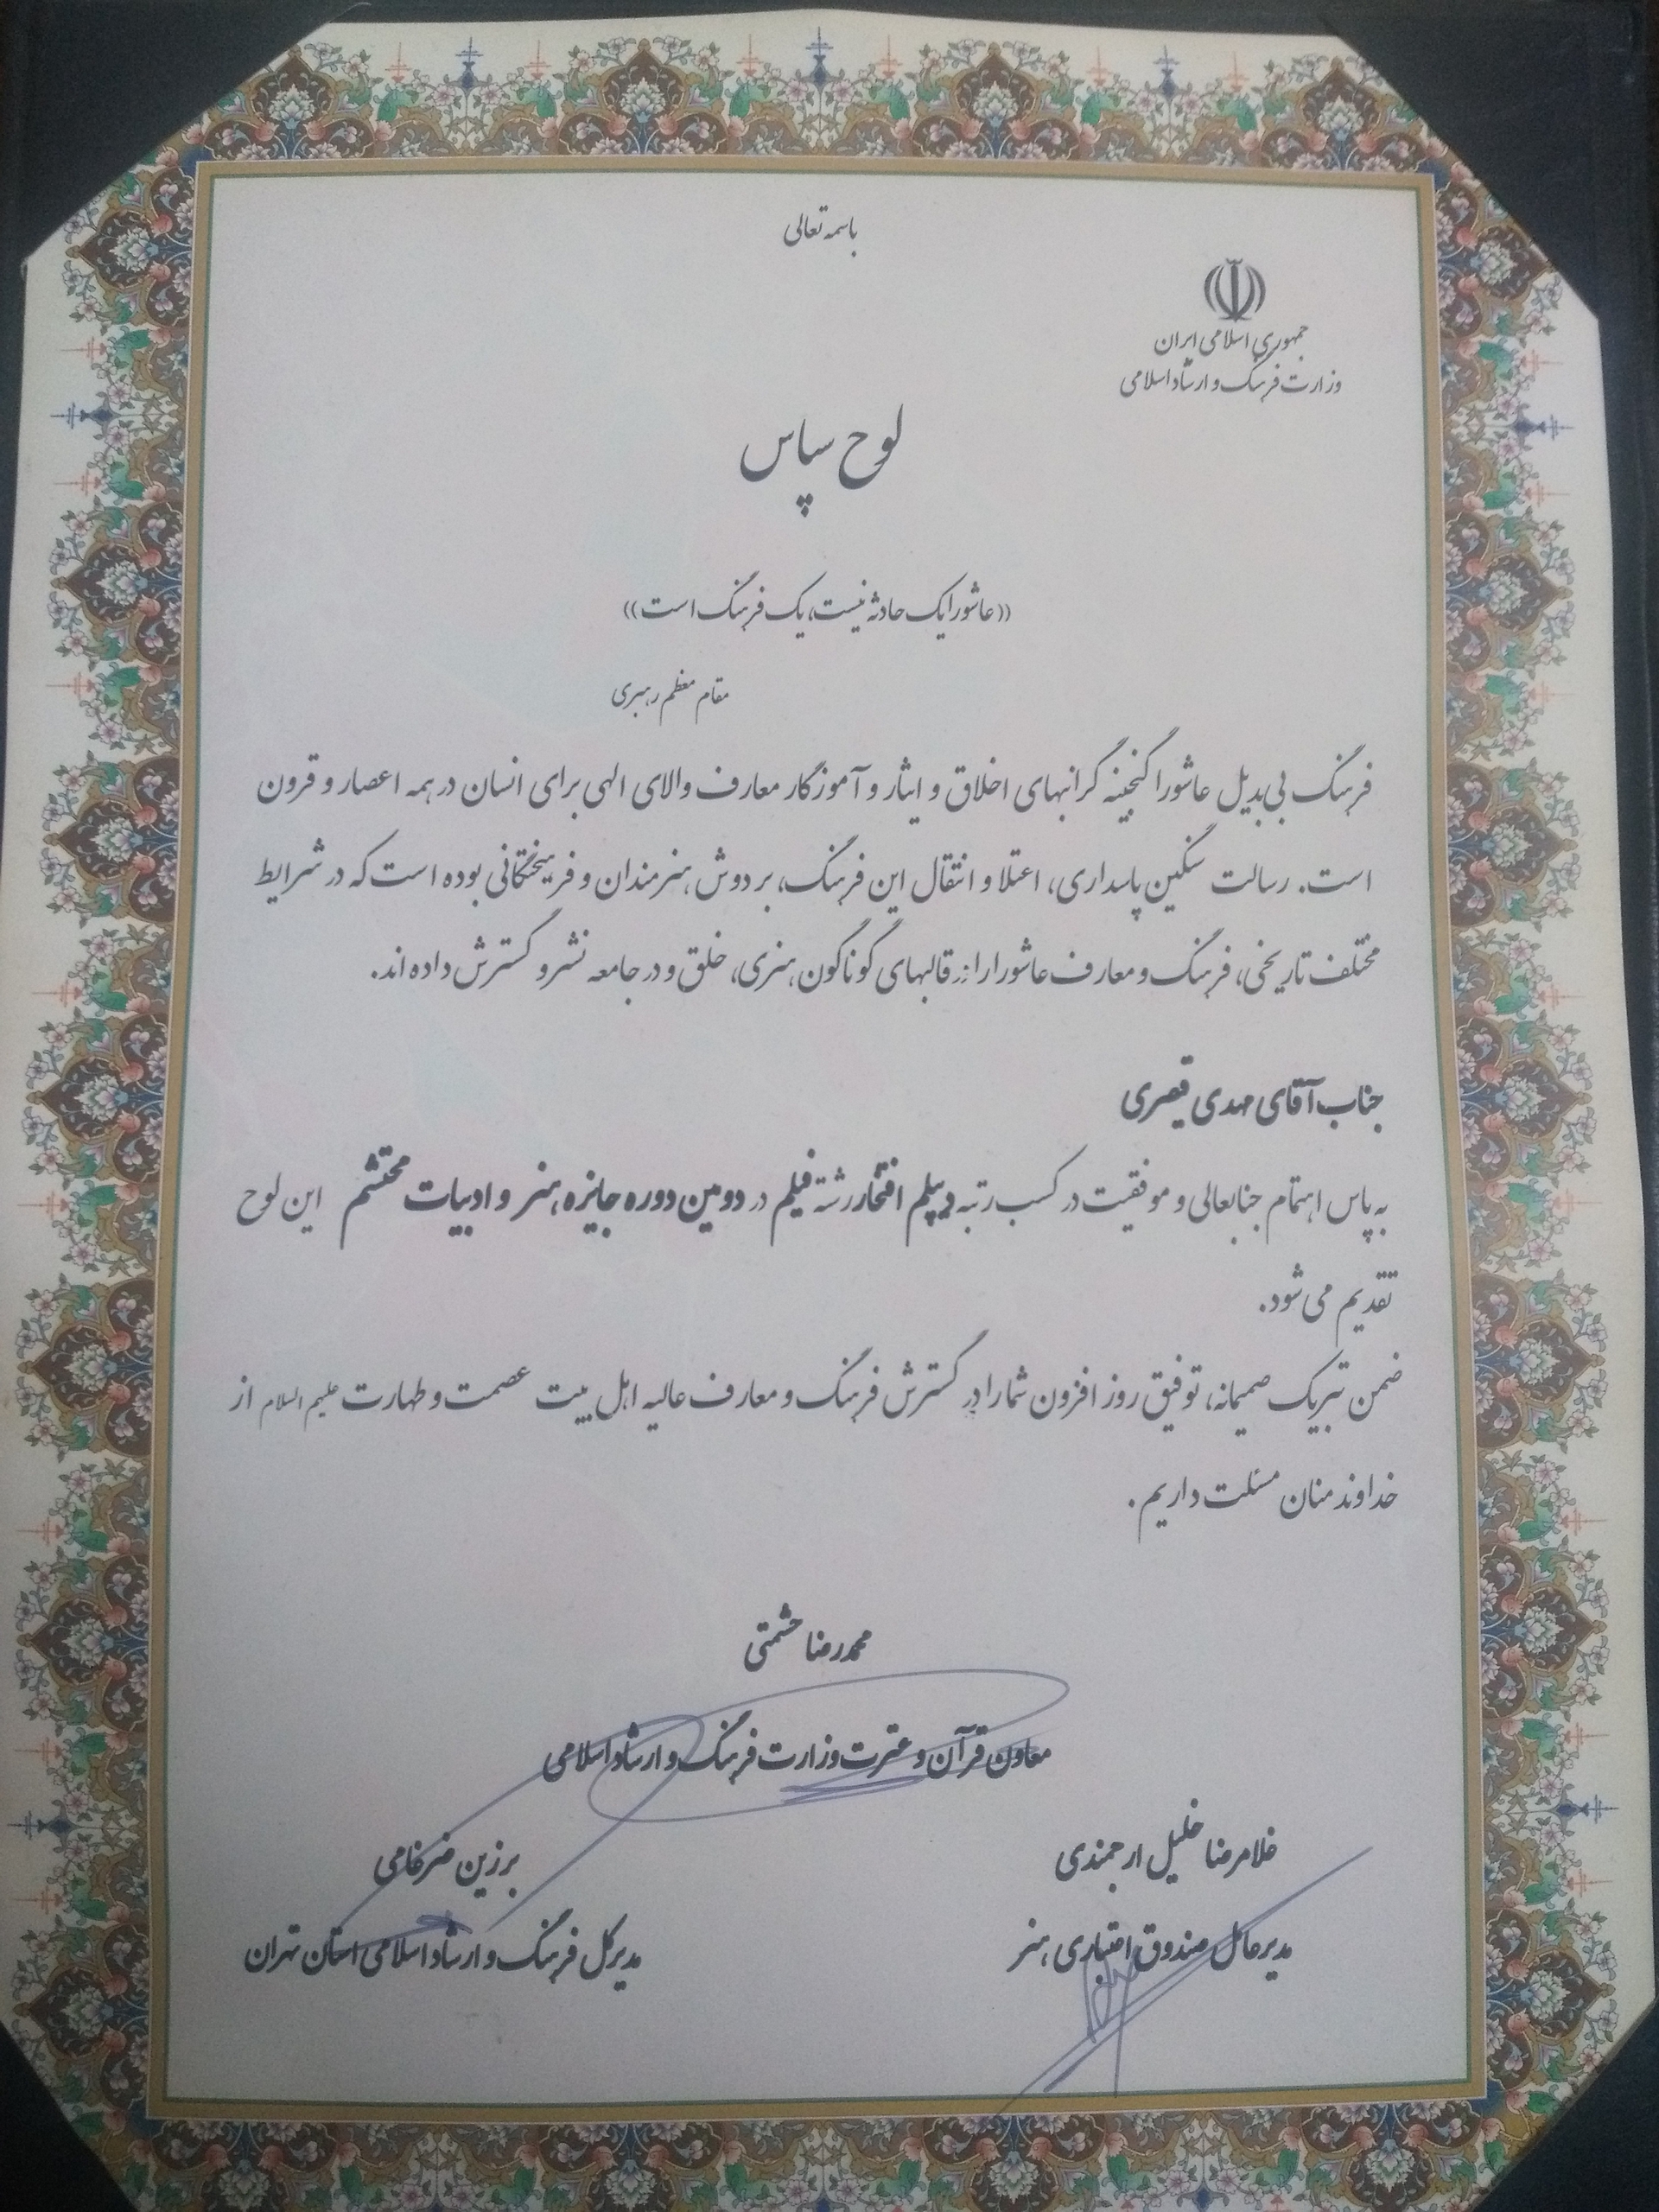 باسمه تعالی
جمهوری اسلامی ایران
وزارت فرهنگ و ارشاد اسلامی
لوح سپاس
((عاشورا یک حادثه نیست، یک فرهنگ است))
مقام معظم رهبری
فرهنگ بی بدیل عاشورا گنجینه گرانبهای اخلاق و ایثار و آموزگار معارف والای الهی برای انسان در همه اعصار و قرون
است. رسالت سنگین پاسداری، اعتلا و انتقال این فرهنگ، بر دوش هنرمندان و فریختگانی بوده است که در شرایط
مختلف تاریخی، فرهنگ و معارف عاشورا را در قالبهای گوناگون هنری، خلق و در جامعه نشر و گسترش داده اند.
جناب آقای مهدی قیصری
به پاس اهتمام جنابعالی و موفقیت در کسب رتبه دیپلم افتخار رشته فیلم در دومین دوره جایزه هنر و ادبیات محتشم این لوح
تقدیم می شود.
ضمن تبریک صمیمانه، توفیق روز افزون شما را در گسترش فرهنگ و معارف عالیه اهل بیت عصمت و طهارت علیهم السلام از
خداوند منان مسئلت داریم.
محمدرضا حشمتی
معاون قرآن و عترت وزارت فرهنگ و ارشاد اسلامی
غلامرضا خلیل ارجمندی
مدیرعامل صندوق اعتباری هنر
برزین ضرغامی
مدیرکل فرهنگ و ارشاد اسلامی استان تهران